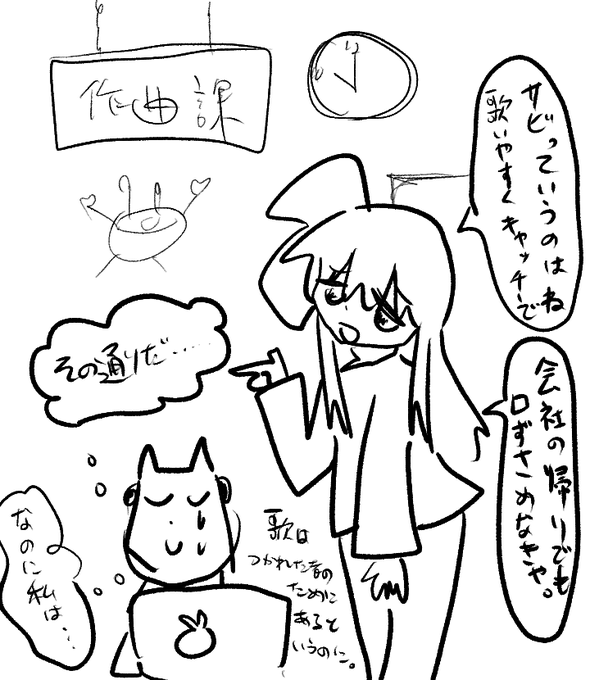 作曲課
サビっていうのはね
歌いやすくキャッチーで
会社の帰りでも
口ずさめなきゃ。
その通りだ……
なのに私は…
歌は
つかれた者の
ために
あると
いうのに。